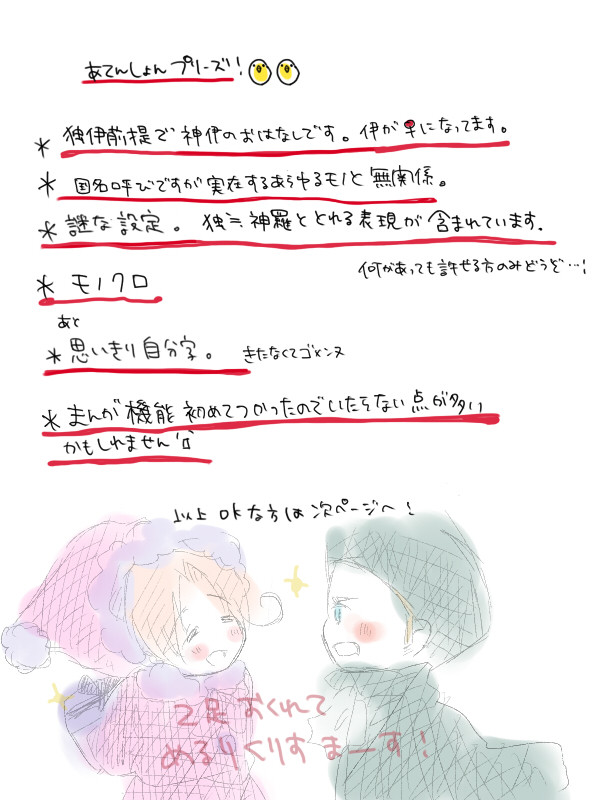 あてんしょんプリーズ!
* 独伊前提で神伊のおはなしです。伊が早になってます。
* 国名呼びですが実在するあらゆるモノと無関係。
* 謎な設定。 独≒神羅ととれる表現が含まれています.
何があっても許せる方のみどうぞ…!
* モノクロ
あと
* 思いきり自分字。 きたなくてゴメンヌ
* まんが機能初めてつかったのでいたらない点が多い
かもしれません
以上 OKな方は次ページへ!
2足おくれて
めるりくりすまーす!